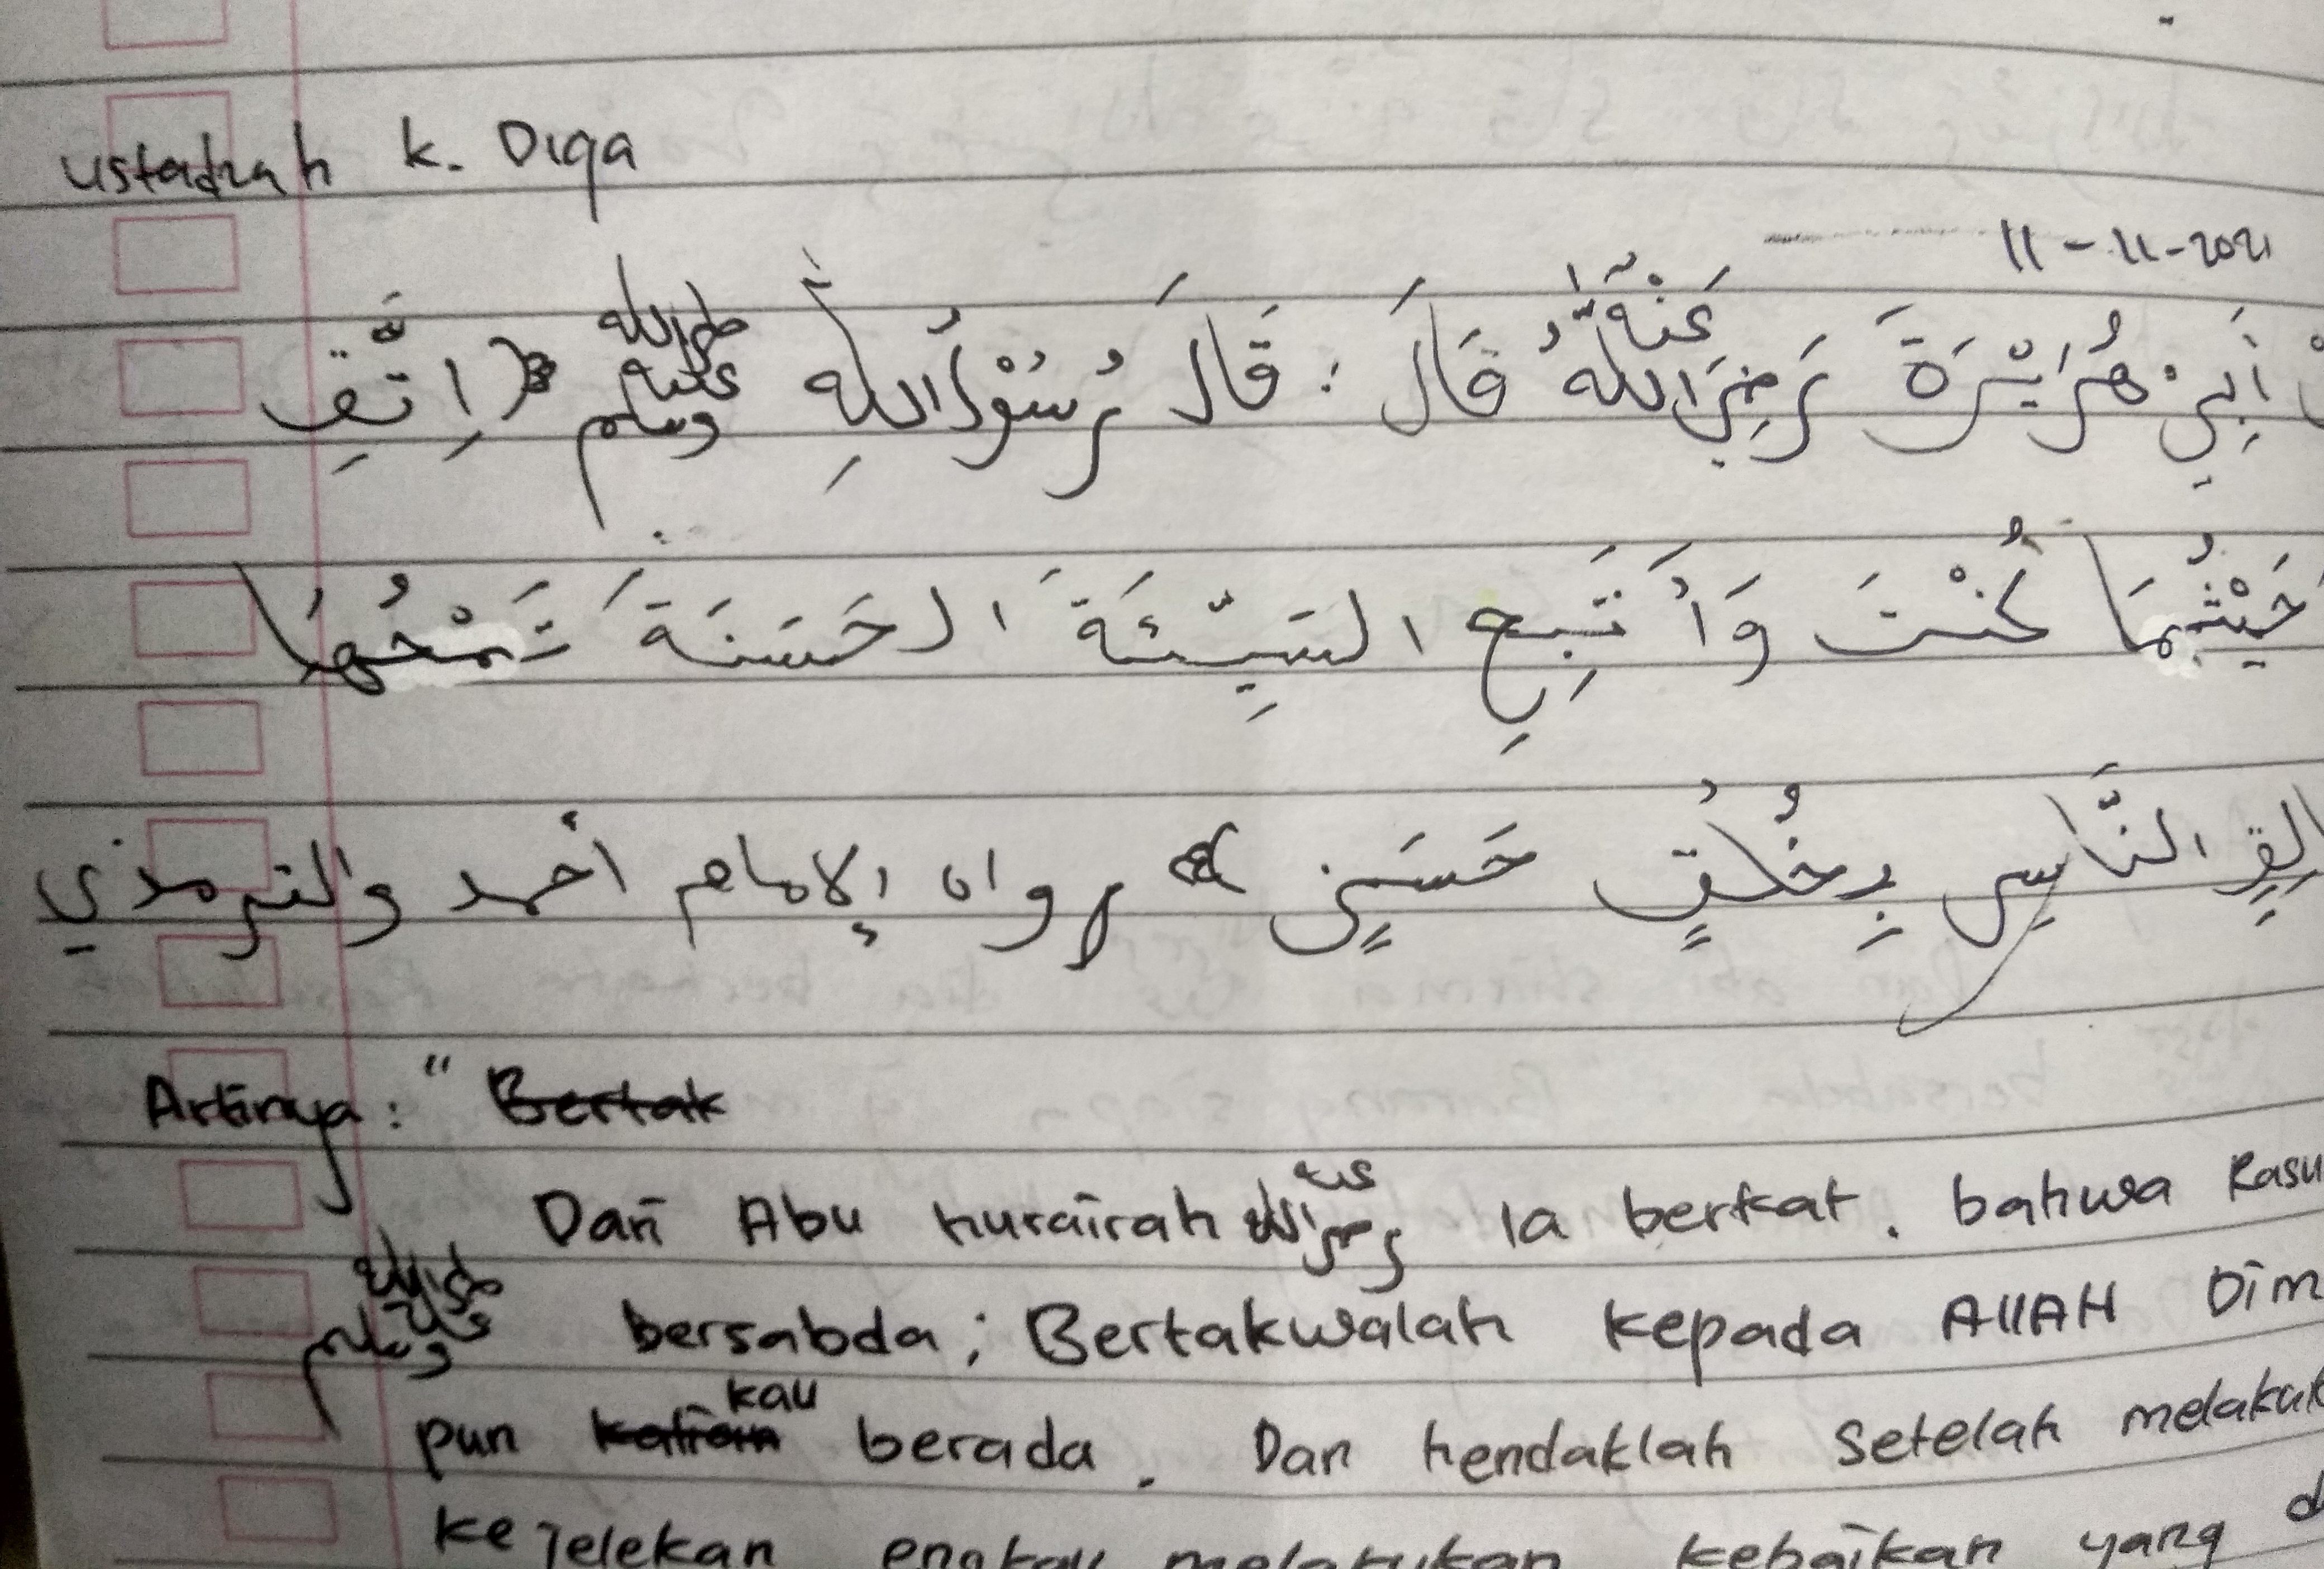 ustadzah K. Diqa
11-11-2021
أَبِي هُرَايْرَةَ رَضِيَ اللهُ عَنْهُ قَالَ : قَالَ رَسُوْلُ اللهِ صلى الله عليه وسلم اِتَّقِ
حَيْثُمَا كُنْتَ وَأَتْبِعِ السَّيِّئَةَ الحَسَنَةَ تَمْحُهَا
النَّاسِ بِخُلُقٍ حَسَنٍ رواه الإمام أحمد والترمذي
Artinya : "
Dari Abu hurairah رضي الله عنه Ia berkat. bahwa Rasu
صلى الله عليه وسلم bersabda ; Bertakwalah kepada AllAH Dim
pun kau berada. Dan hendaklah setelah melakuk
kejelekan engkau melakukan kebaikan yang d